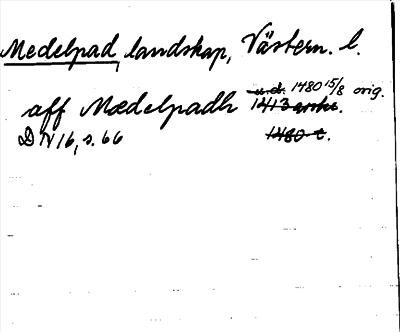 Medelpad, landskap, Västern. l.
u.d. 1480 15/8 orig.
aff Mædelpadh 1413 avskr.
DN 16, s. 66 1480 t.